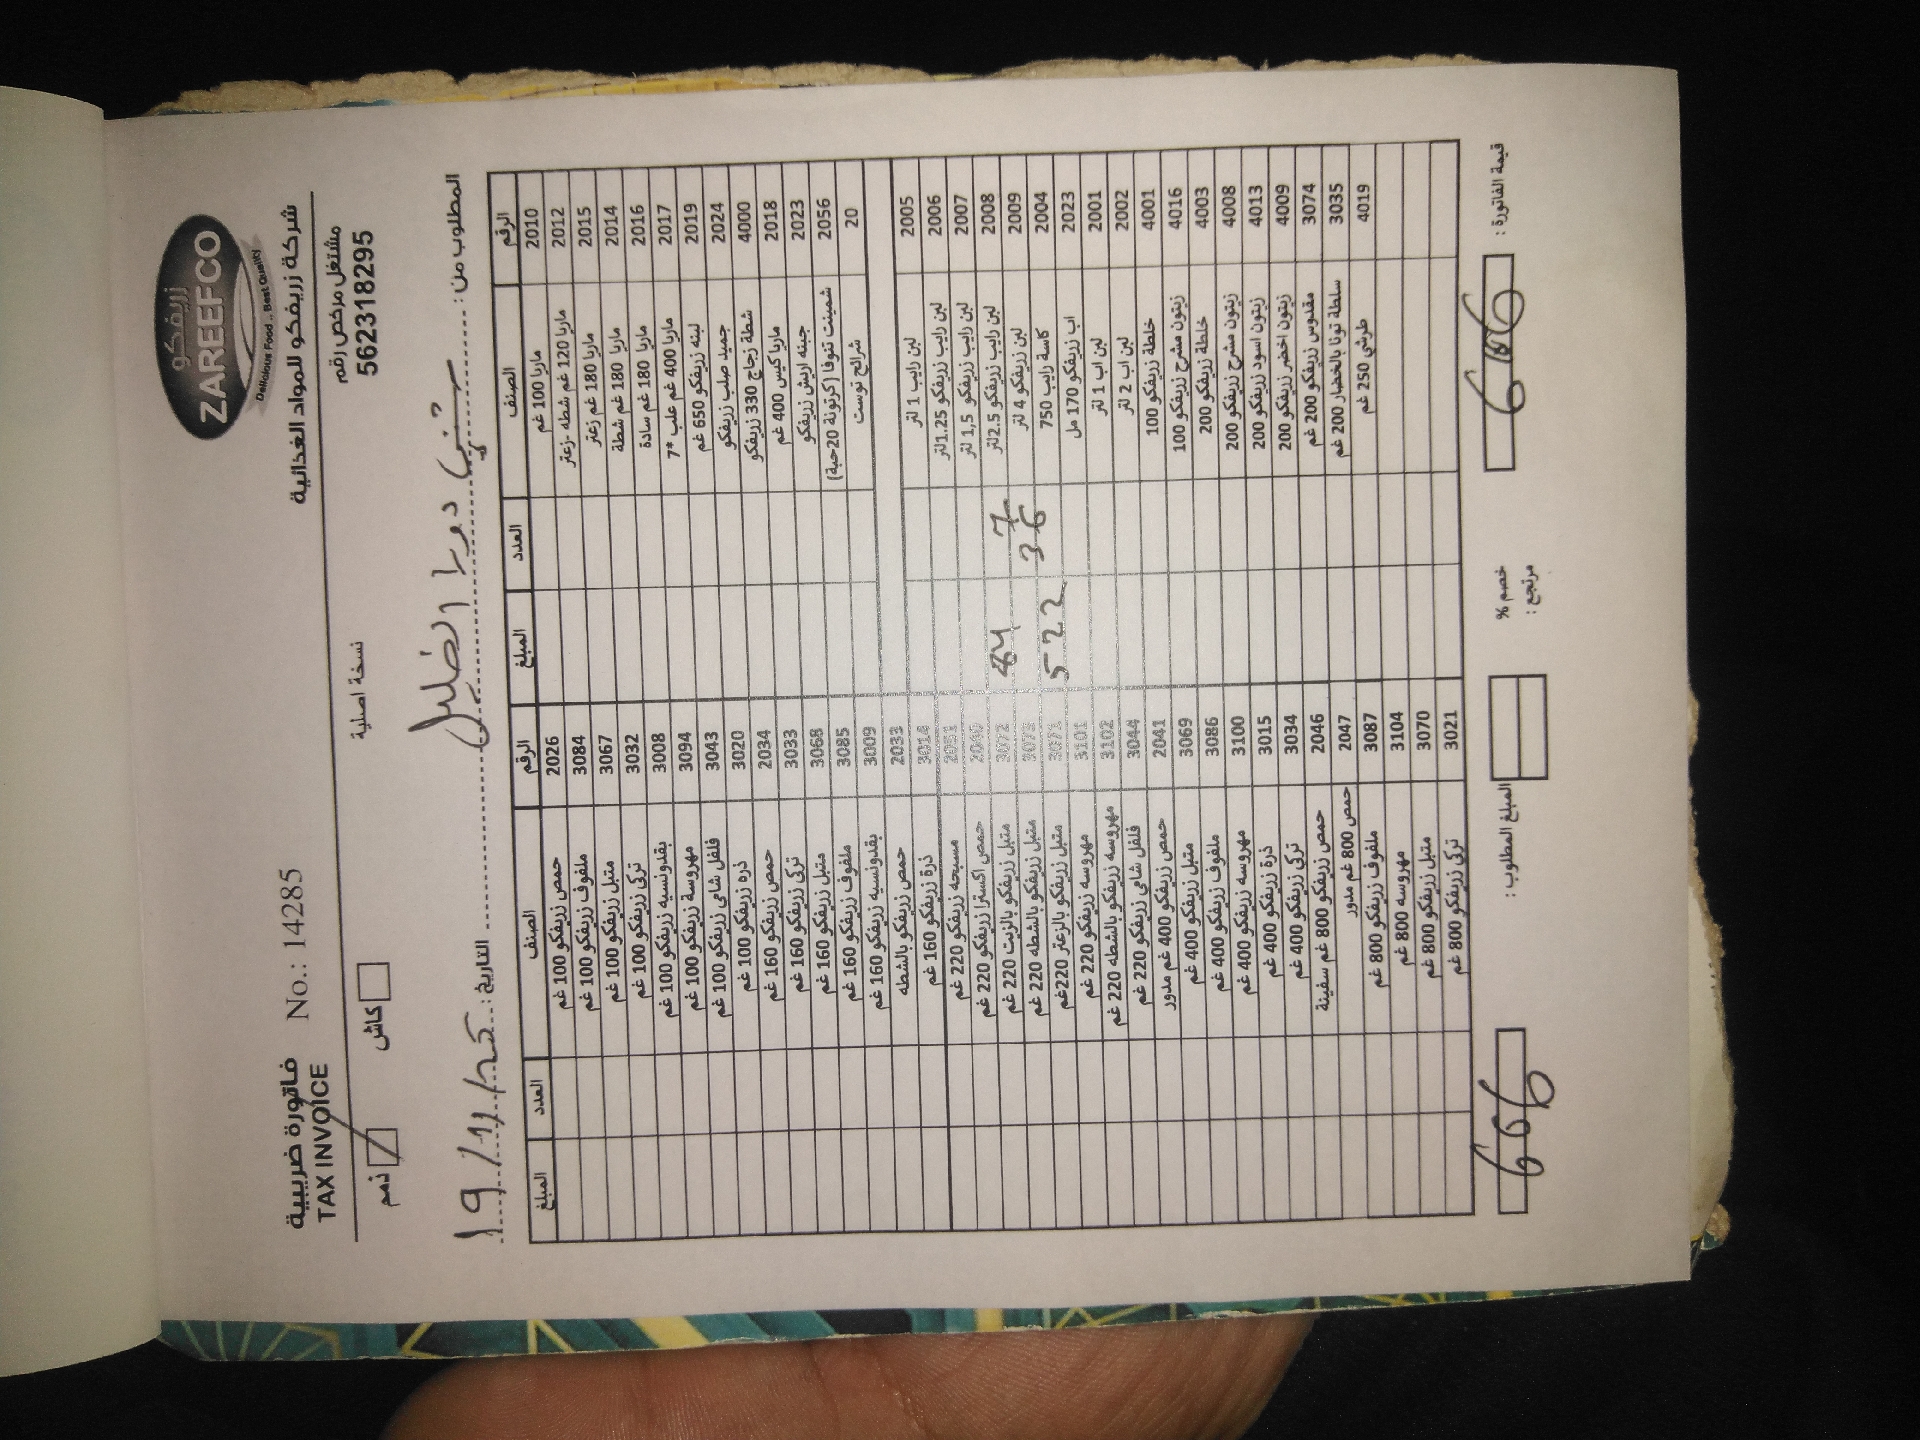 زريفكو
ZAREEFCO
Delicious Food .. Best Quality
شركة زريفكو للمواد الغذائية
مشتغل مرخص رقم
562318295
فاتورة ضريبية No.: 14285
TAX INVOICE
نسخة اصلية
ذمم كاش
المطلوب من : دورا
التاريخ :
الرقم الصنف العدد المبلغ الرقم الصنف العدد المبلغ
2010 ماريا 100 غم 2026 حمص زريفكو 100 غم
2012 ماريا 120 غم شطه -زعتر 3084 ملفوف زريفكو 100 غم
2015 ماريا 180 غم زعتر 3067 متبل زريفكو 100 غم
2014 ماريا 180 غم شطة 3032 تركي زريفكو 100 غم
2016 ماريا 180 غم سادة 3008 بقدونسيه زريفكو 100 غم
2017 ماريا 400 غم علب *7 3094 مهروسة زريفكو 100 غم
2019 لبنه زريفكو 650 غم 3043 فلفل شامي زريفكو 100 غم
2024 جميد صلب زريفكو 3020 ذره زريفكو 100 غم
4000 شطة زجاج 330 زريفكو 2034 حمص زريفكو 160 غم
2018 ماريا كيس 400 غم 3033 تركي زريفكو 160 غم
2023 جبنه اريش زريفكو 3068 متبل زريفكو 160 غم
2056 شمينت تنوفا (كرتونة 20حبة) 3085 ملفوف زريفكو 160 غم
20 شرائح توست 3009 بقدونسيه زريفكو 160 غم
2033 حمص زريفكو بالشطه
2005 لبن رايب 1 لتر 3014 ذرة زريفكو 160 غم
2006 لبن رايب زريفكو 1.25لتر 2051 مسبحه زريفكو 220 غم
2007 لبن رايب زريفكو 1,5 لتر 2040 حمص اكسترا زريفكو 220 غم
2008 لبن رايب زريفكو 2.5لتر 3072 متبل زريفكو بالزيت 220 غم
2009 لبن زريفكو 4 لتر 7 84 متبل زريفكو بالشطه 220 غم
2004 كاسة رايب 750 36 522 3071 متبل زريفكو بالزعتر 220غم
2023 اب زريفكو 170 مل 3101 مهروسه زريفكو 220 غم
2001 لبن اب 1 لتر 3102 مهروسه زريفكو بالشطه 220 غم
2002 لبن اب 2 لتر 3044 فلفل شامي زريفكو 220 غم
4001 خلطة زريفكو 100 2041 حمص زريفكو 400 غم مدور
4016 زيتون مشرح زريفكو 100 3069 متبل زريفكو 400 غم
4003 خلطة زريفكو 200 3086 ملفوف زريفكو 400 غم
4008 زيتون مشرح زريفكو 200 3100 مهروسه زريفكو 400 غم
4013 زيتون اسود زريفكو 200 3015 ذرة زريفكو 400 غم
4009 زيتون اخضر زريفكو 200 3034 تركي زريفكو 400 غم
3074 مقدوس زريفكو 200 غم 2046 حمص زريفكو 800 غم سفينة
3035 سلطة تونا بالخضار 200 غم 2047 حمص 800 غم مدور
4019 طرشي 250 غم 3087 ملفوف زريفكو 800 غم
3104 مهروسه 800 غم
3070 متبل زريفكو 800 غم
3021 تركي زريفكو 800 غم
قيمة الفاتورة : خصم % المبلغ المطلوب : 606
مرتجع :